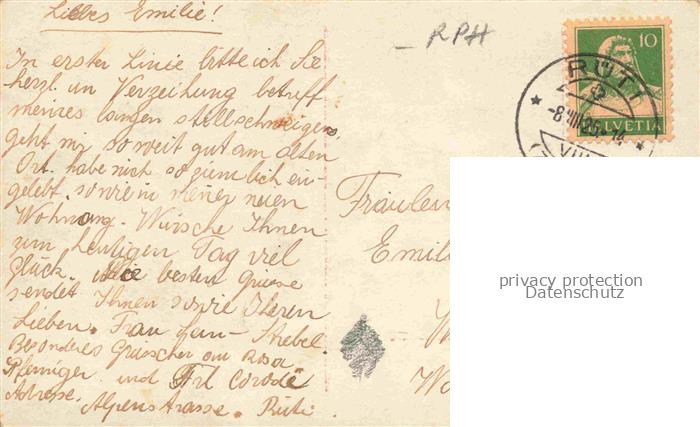 Liebes Emilie!
In erster Linie bitte ich Sie
herzl. um Verzeihung betreff
meines langen stellschweigens
geht mir so weit gut am alten
Ort. habe mich so ziemlich ein-
gelebt, sowie in meiner neuen
Wohnung. Wünsche Ihnen
zum heutigen Tag viel
Glück. Die besten Grüsse
sendet Ihnen sowie Ihren
Lieben. Frau - Strebel
Besonderes Grüsschen an Rosa
Pfenniger und Frl
Adresse. Alpenstrasse. Rüti
RPH
10
HELVETIA
RÜTI
Fräulein
Emil
privacy protection
Datenschutz